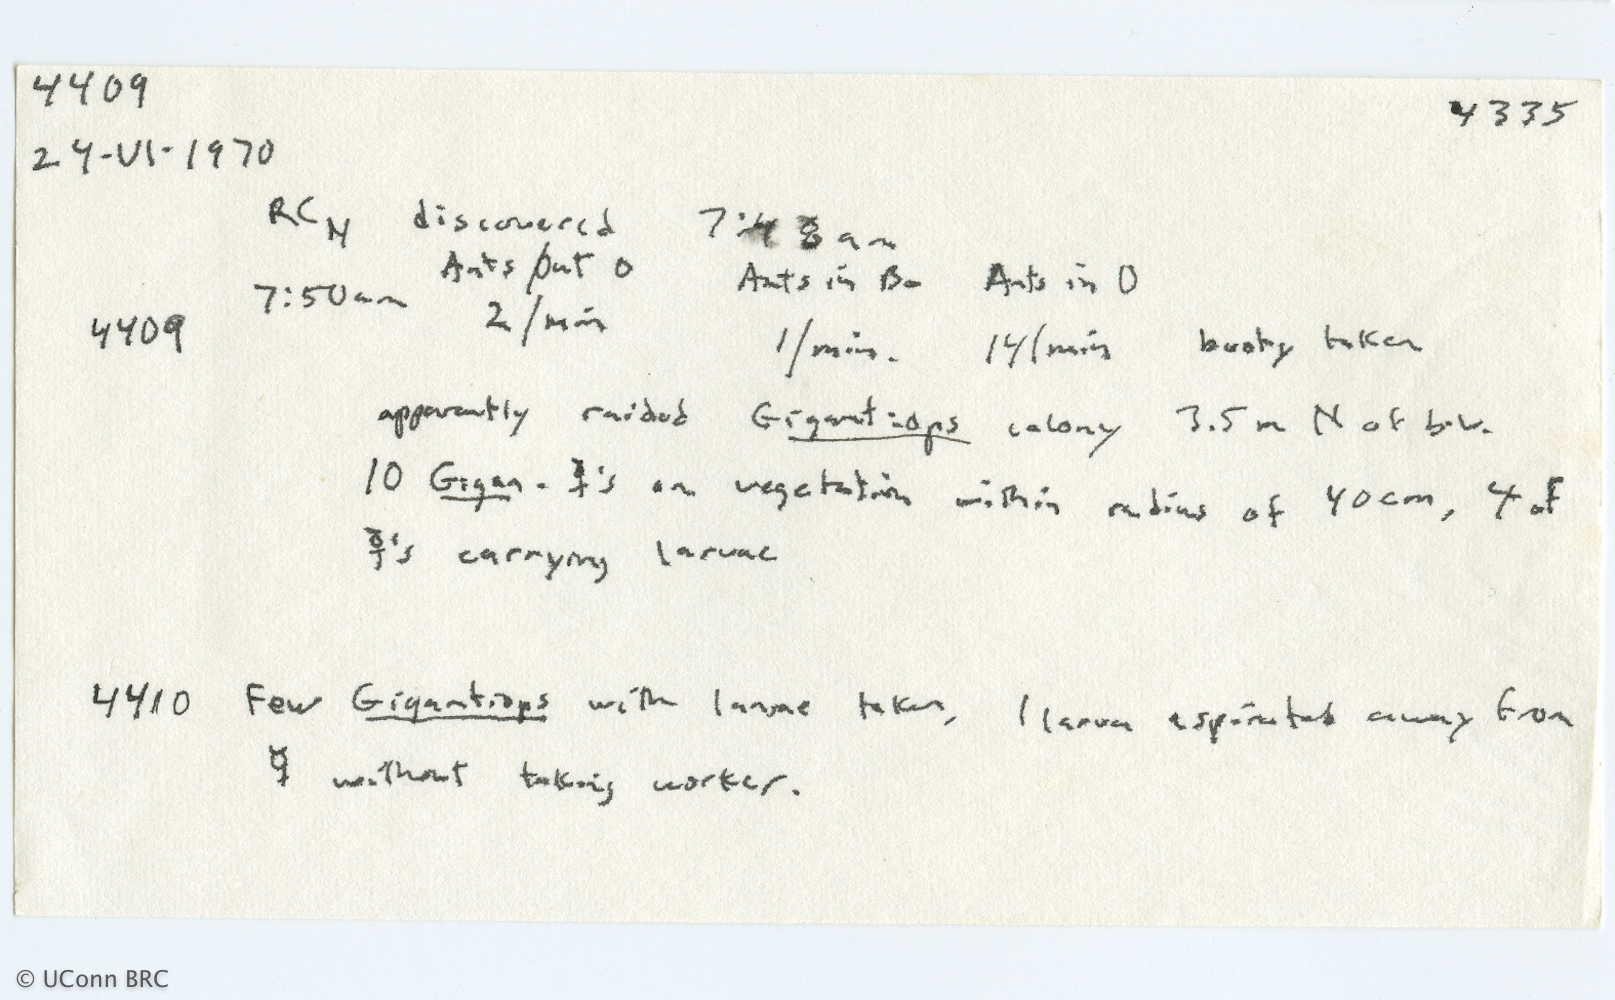 4409
4335
24-VI-1970
RCN discovered 7:48 am
Ants out 0 Ants in Bo Ants in 0
7:50am 2/min
4409 1/min. 14/min booty taken
apparently raided Gigantiops colony 3.5 m N of biv.
10 Gigan. ☿'s on vegetation within radius of 40cm, 4 of
☿'s carrying larvae
4410 Few Gigantiops with larvae taken, 1 larva aspirated away from
☿ without taking worker.
© UConn BRC